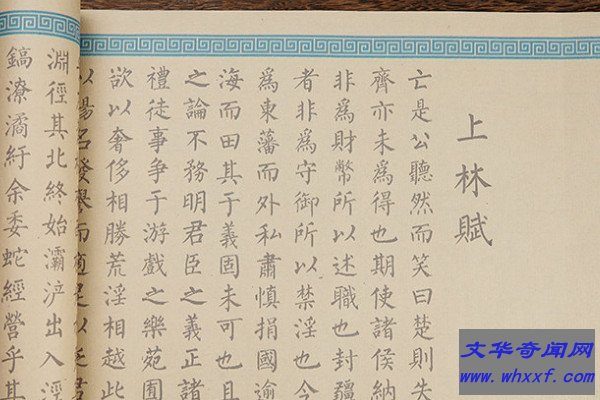 上林賦
亡是公聽然而笑曰楚則失
齊亦未爲得也期使諸侯納
非爲財幣所以述職也封疆
者非爲守御所以禁淫也今
爲東藩而外私肅慎捐國逾
海而田其于義固未可也且
之論不務明君臣之義正諸
禮徒事爭于游戲之樂苑囿
欲以奢侈相勝荒淫相越此
以揚名發譽而適足以
淵徑其北終始灞浐出入涇
鎬潦潏紆余委蛇經營乎其
文华奇闻网
www.whxxf.com